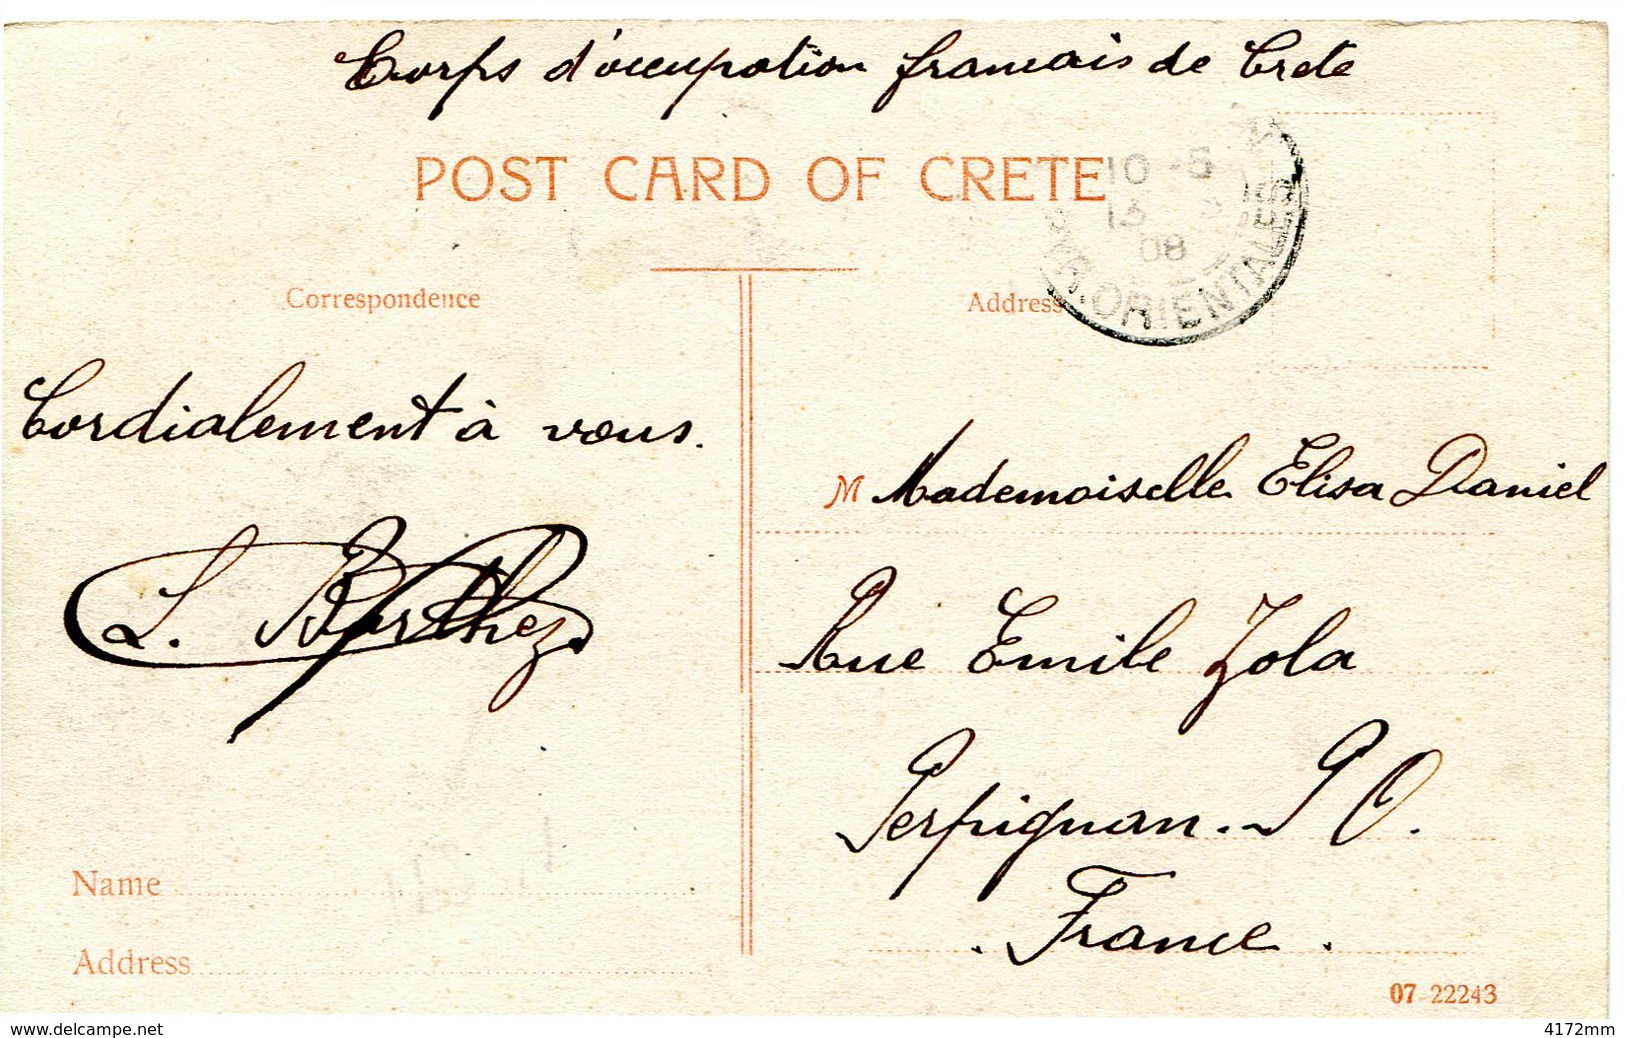 Corps d'occupation francais de Crete
POST CARD OF CRETE
10 -5
13
08
PYR. ORIENTALES
Correspondence
Address
Cordialement à vous.
L. Barthez
M Mademoiselle Elisa Daniel
Rue Emile Zola
Perpignan. P O.
. France .
Name
Address
07 22243
www.delcampe.net
4172mm